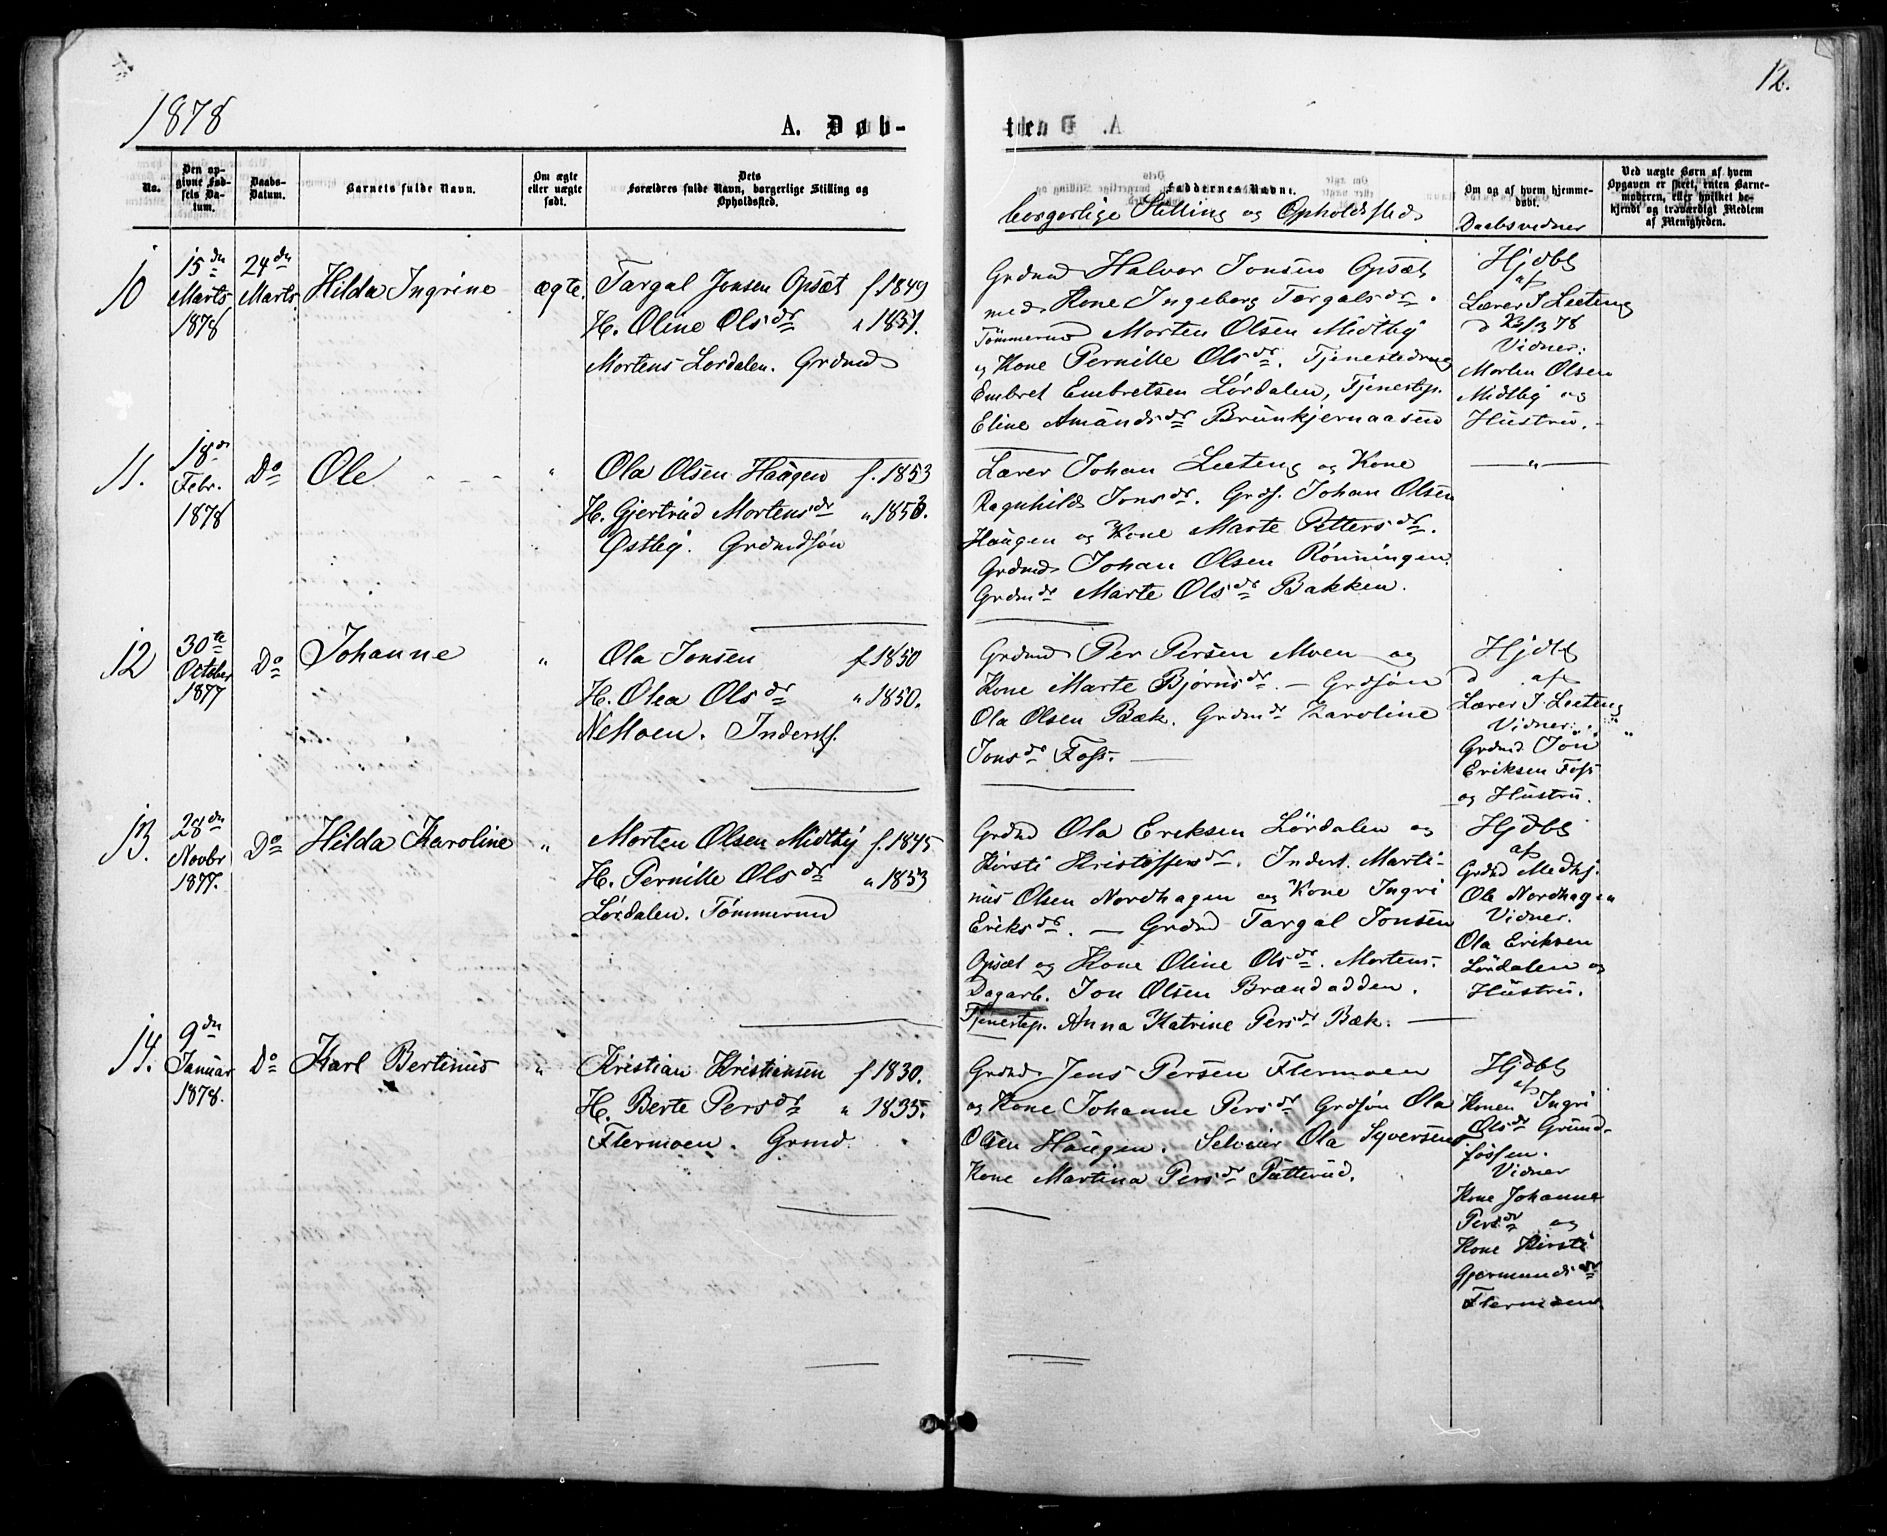 12.
1878
A. Døb-
te.
No.
Den op-
givne Fød-
sels Da-
tum.
Daabs-
Datum.
Barnets fulde Navn.
Om ægte
eller uægte
født.
Dets
Forældres fulde Navn, borgerlige Stilling og
Opholdssted.
Faddernes Navn,
borgerlige Stilling og Opholdssted
Om og af hvem hjemme-
døbt.
Daabsvidner
Ved uægte Børn af hvem
Opgaven er skeet, enten Barne-
moderen, eller hvilket be-
kjendt og troværdigt Medlem
af Menigheden.
10
15de
Marts
1878
24de
Marts
Hilda Ingrine
ægte.
Targal Jonsen Opsæt f. 1849
H. Oline Olsdr " 1851.
Mortens Lordalen. Grdmd
Grdmd Halvor Jonsen Opsæt
med Kone Ingeborg Targalsdr.
Tømmermd Morten Olsen Midtby
og Kone Pernille Olsdr. Tjenestedreng
Embret Embretsen Lørdalen, Tjenestep.
Eline Amundsdr Brunkjernaasen
Hjdbt
af
Lærer J Leeteng
Vidner:
Morten Olsen
Midtby og
Hustru.
11.
18de
Febr.
1878
Do
Ole
"
Ola Olsen Haugen f. 1853
H. Gjertrud Mortensdr " 1853.
Østby. Grdmdsøn
Lærer Johan Leeteng og Kone
Ragnhild Jonsdr. Grds. Johan Olsen
Haugen og Kone Marte Pettersdr.
Grdmds Johan Olsen Rønningen.
Grdmdr Marte Olsdr Bakken.
"
12
30te
October
1877
Do
Johanne
"
Ola Jonsen f 1850
H. Olea Olsdr " 1850.
NeMoen. Inderst.
Grdmd Per Persen Moen og
Kone Marte Bjørnsdr. - Grdsøn
Ola Olsen Bæk. Grdmdr Karoline
Jonsdr Foss.
Hjdbt
af
Lærer J Leeteng
Vidner:
Grdmd. Jon
Eriksen Foss
og Hustru.
13.
28de
Novbr
1877.
Do
Hilda Karoline
"
Morten Olsen Midtby f. 1845
H. Pernille Olsdr " 1853
Lørdalen. Tømmermd
Grdmd Ola Eriksen Lørdalen og
Kirsti Kristoffersdr. Inderst. Marti-
nus Olsen Nordhagen og Kone Ingri
Eriksdr. - Grdmd Targal Jonsen
Opsæt og Kone Oline Olsdr. Mortens.
Dagarb. Jon Olsen Brændadden.
Tjenestep. Anna Katrine Persdr Bæk.
Hjdbt
af
Grdmd Medhj.
Ole Nordhagen
Vidner.
Ola Eriksen
Lørdalen og
Hustru.
14.
9de
Januar
1878.
Do
Karl Bertinus
"
Kristian Kristiansen f 1830.
H. Berte Persdr " 1835.
Flermoen. Grmd.
Grdmd Jens Persen Flermoen
og Kone Johanne Persdr Grdsøn Ola
Olsen Haugen. Selveier Ola Syversens
Kone Martina Persdr Pütterud.
Hjdbt
af
Konen Ingri
Olsdr Grund-
fossen.
Vidner
Kone Johanne
Persdr og
Kone Kirsti
Gjermundsdr
Flermoen